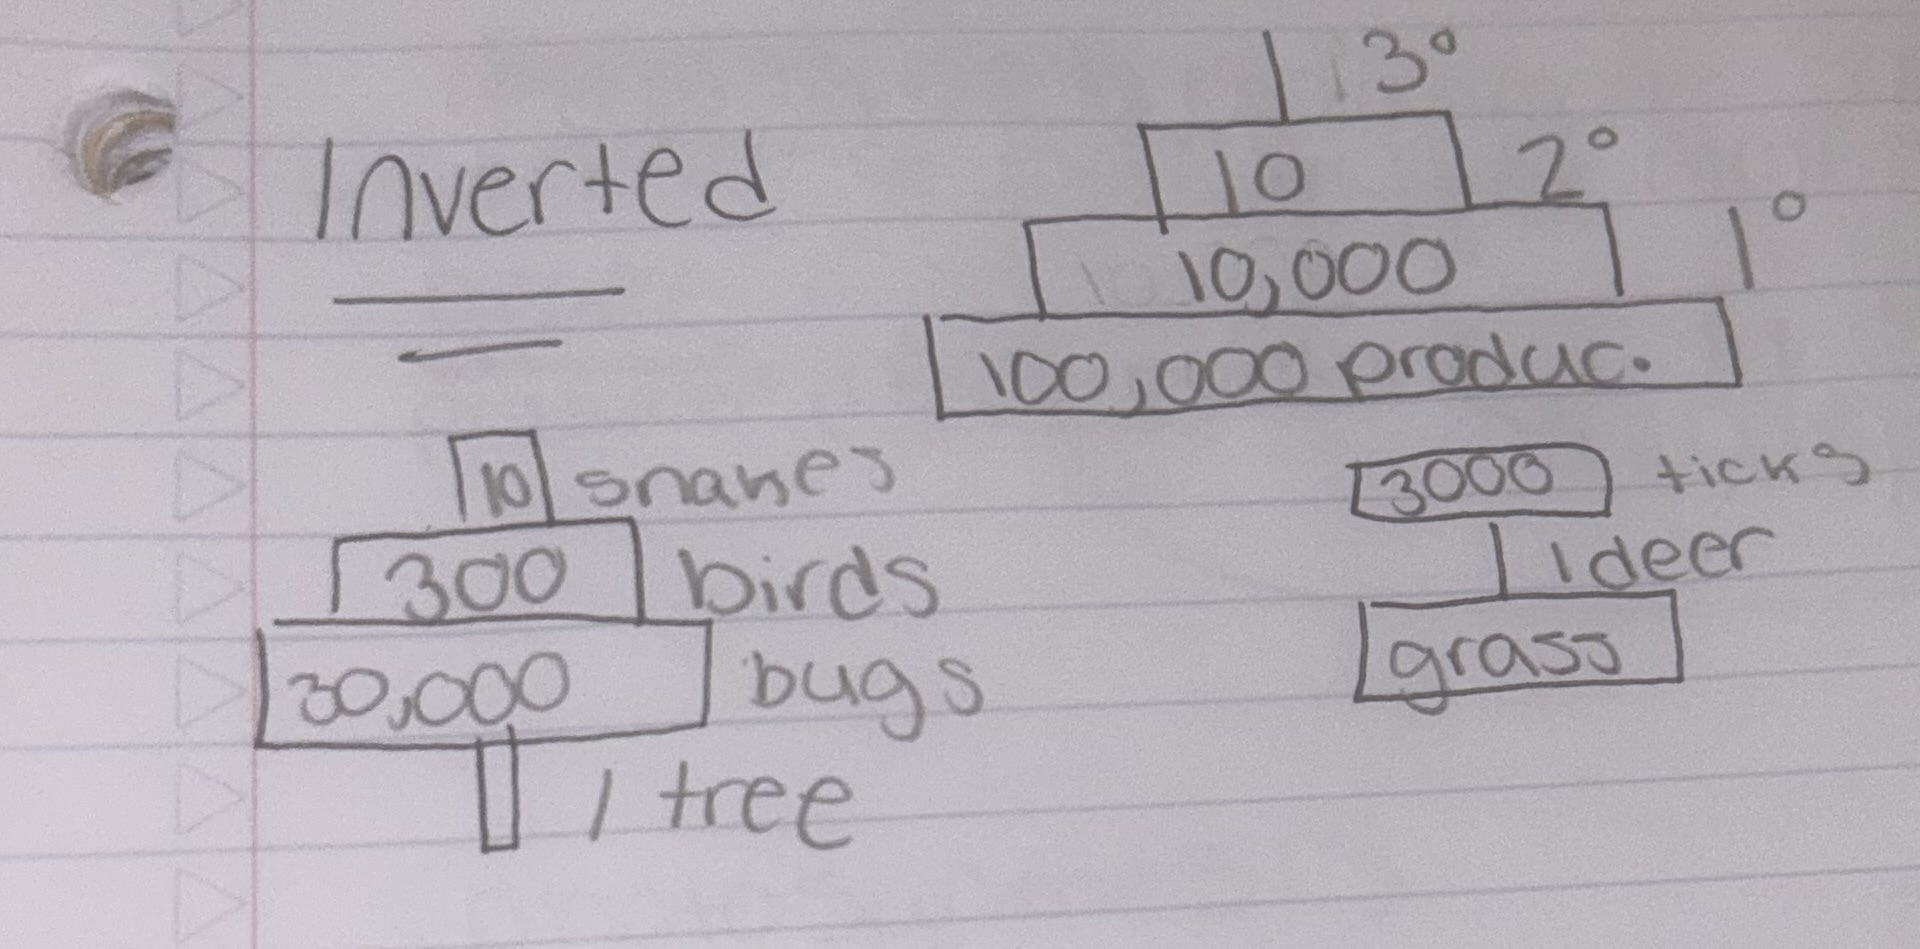 Inverted
3°
10 2°
10,000 1°
100,000 produc.
10 snakes
300 birds
30,000 bugs
1 tree
3000 ticks
1 deer
grass